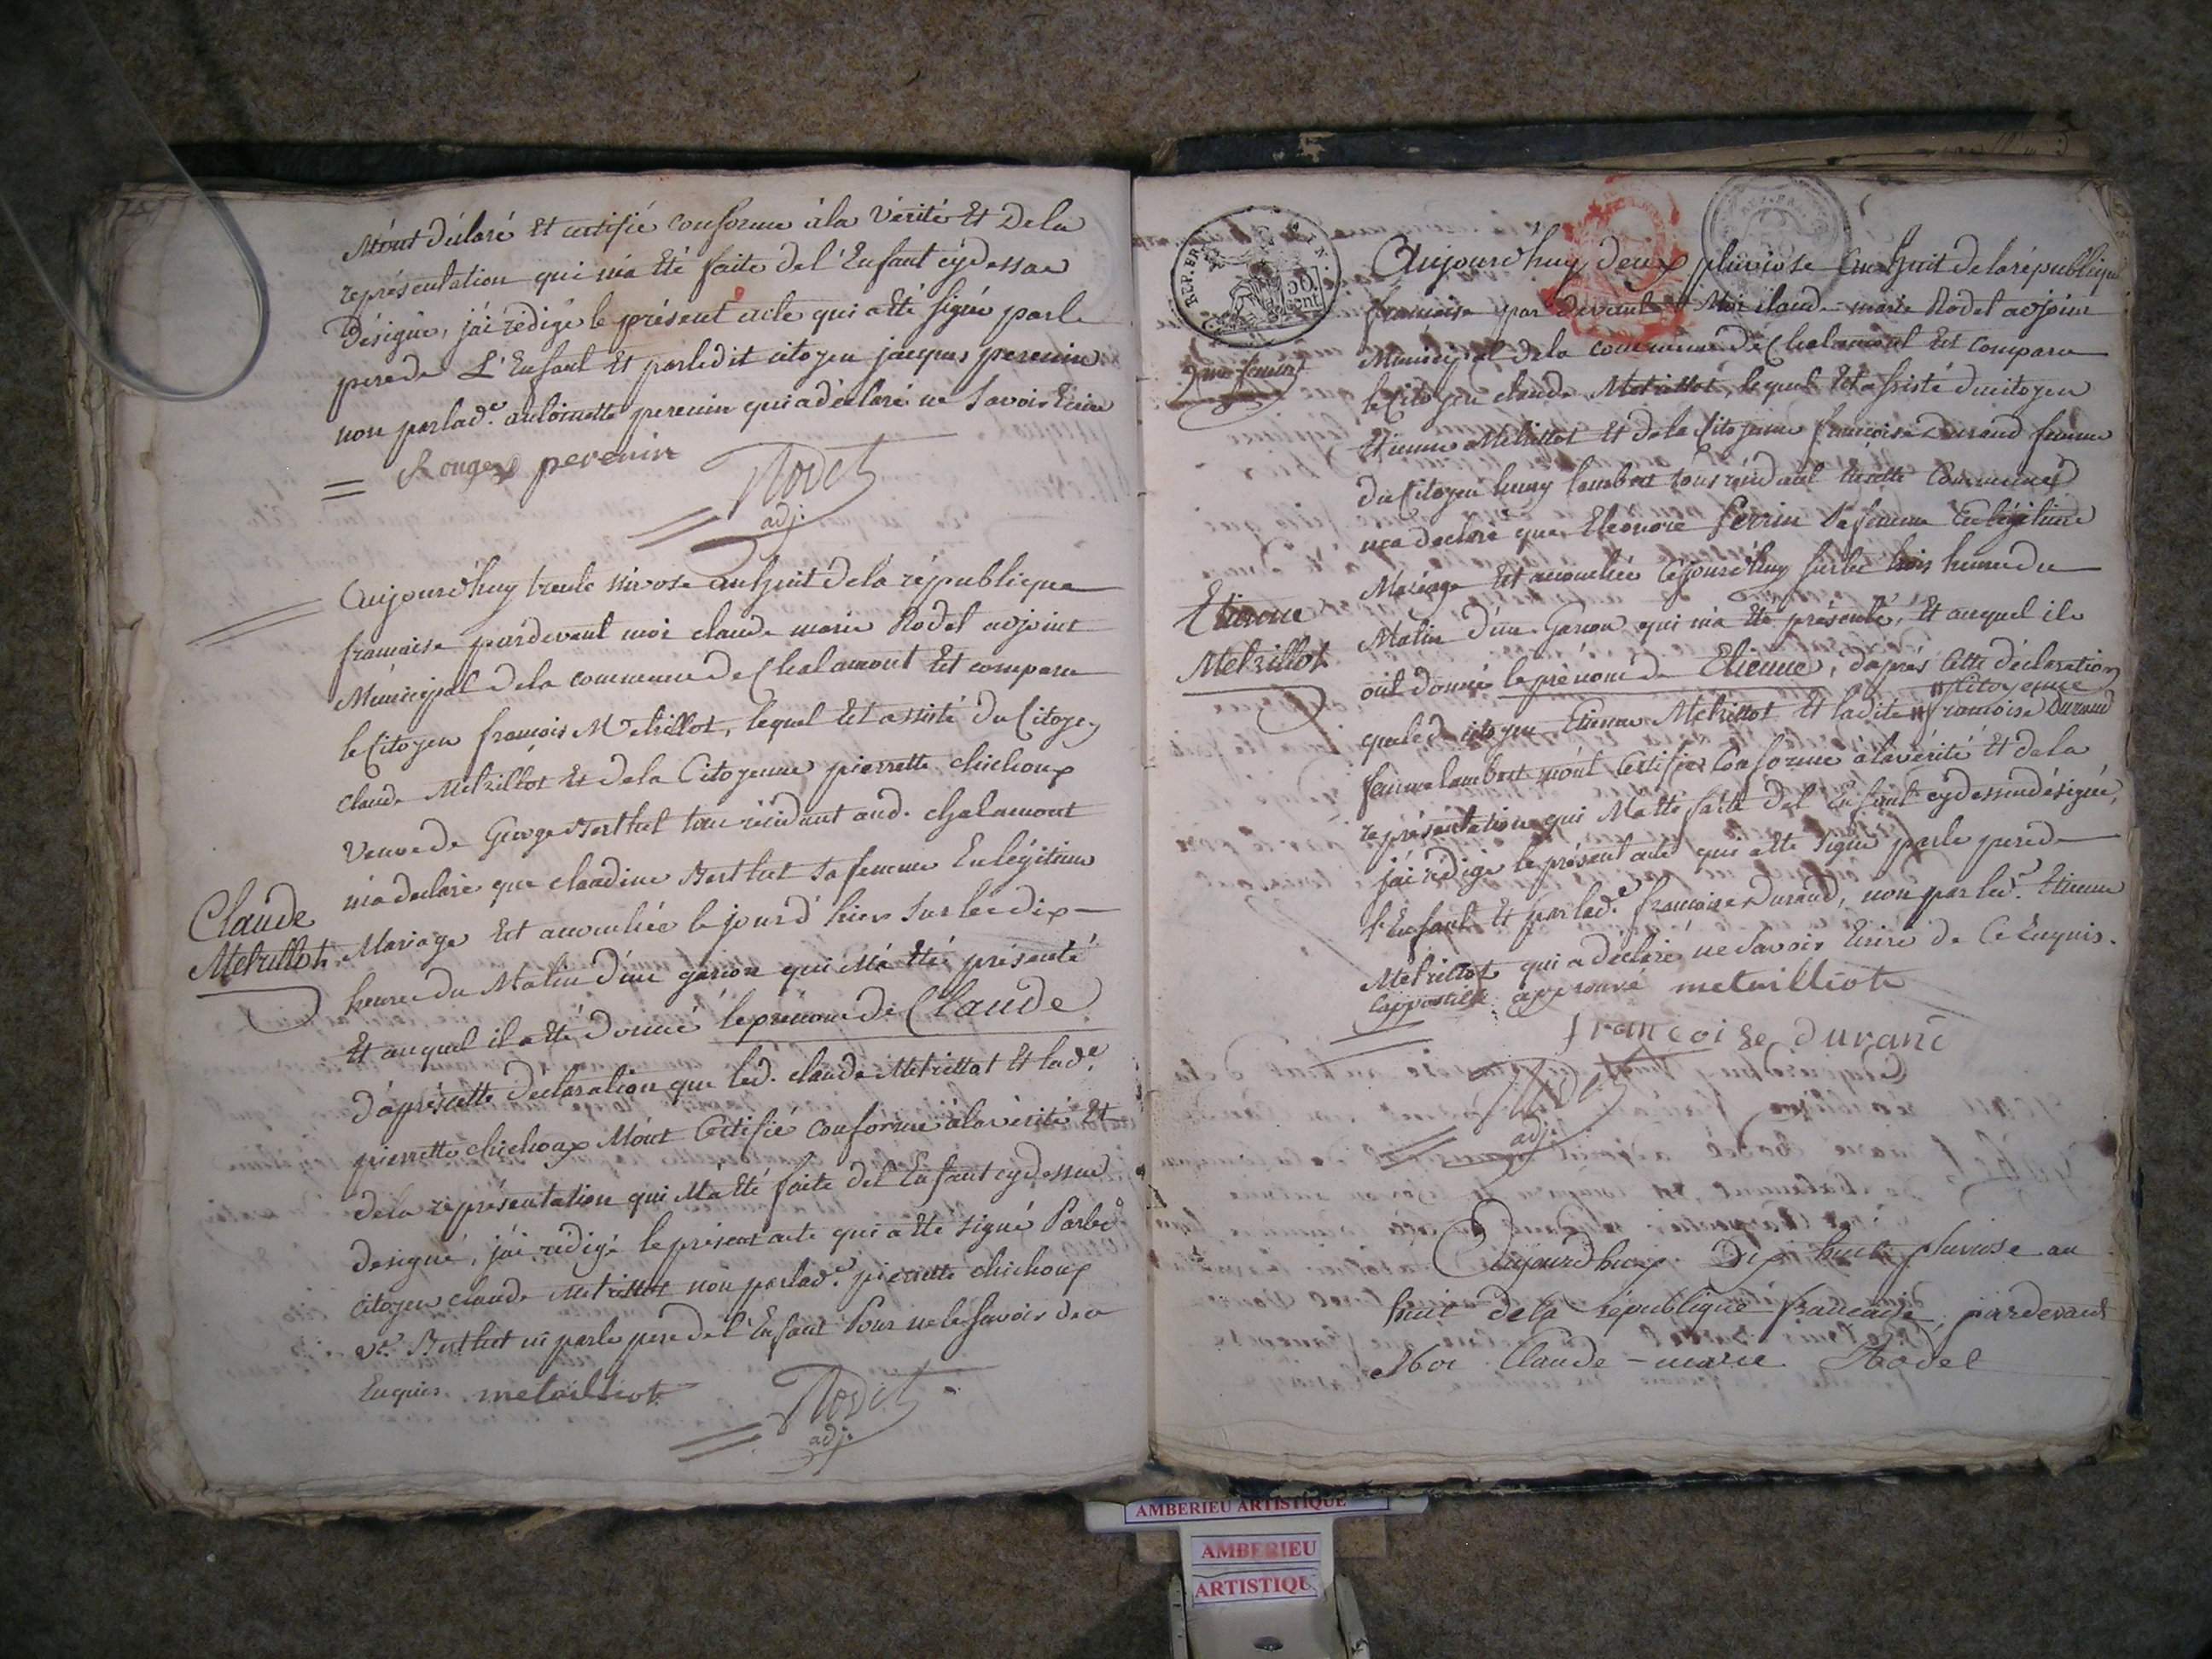 M'ont déclaré Et certifié conforme à la Vérité Et De la
représentation qui m'a Eté faite de l'Enfant cy dessus
Désigné, j'ai rédigé le présent acte qui a été signé par le
pere de L'Enfant Et par ledit citoyen jacques perenin
non par lad.e antoinette perenin qui a déclaré ne Savoir Ecrire
Rouge perenin
Rodet
adj.
Aujourd'huy trente nivose an huit de la république
francaise pardevant moi claude marie Rodet adjoint
Municipal de la commune de Chalamont Est comparu
le Citoyen francois Metrillot, lequel Est assisté du Citoyen
Claude Metrillot Et de la Citoyenne pierrette chichoux
Veuve de George Berthet tous résidant aud. chalamont
m'a déclaré que claudine Berthet Sa femme En légitime
Claude
Metrillot
Mariage Est accouchée le jour d'hier Sur les dix
heures du Matin d'un garcon qui M'a Eté présenté
Et auquel il a Eté Donné le prénom de Claude
D'après cette Declaration que led. claude Metrillot Et lad.e
pierrette chichoux M'ont Certifié conforme à la vérité Et
de la représentation qui M'a Eté faite de l'Enfant cy dessus
designé, j'ai rédigé le présent acte qui a Eté signé Par led
citoyen claude Metrillot non par lad.e pierrette chichoux
v.e Berthet ni par le pere de l'Enfant Pour ne le Savoir de ce
Enquis. metailliot
Rodet
adj.
REP. FRA.
50
cent.
Aujourd'huy deux pluviose an huit de la république
francaise par devant Moi claude-marie Rodet adjoint
Municipal de la commune de Chalamont Est comparu
le Citoyen claude Metrillot, lequel Est assisté du citoyen
Etienne Metrillot Et de la Citoyenne francoise Durand femme
du Citoyen henry lambert tous résidant En cette Commune
m'a declaré que Eleonore Perrin Sa femme En légitime
Mariage Est accouchée Cejourd'huy Sur les trois heures du
Etienne
Metrillot
Matin d'un Garcon qui m'a Eté présenté, Et auquel ils
ont donné le prénom de Etienne, d'après Cette déclaration
citoyenne
que led. citoyen Etienne Metrillot Et ladite francoise Durand
femme lambert m'ont Certifié Conforme à la vérité Et de la
représentation qui M'a Eté faite de l'Enfant cy dessus désigné,
j'ai rédigé le présent acte qui a Eté Signé par le pere de
l'Enfant Et par lad.e francoise Durand, non par led.t Etienne
Metrillot qui a déclaré ne Savoir Ecrire de Ce Enquis.
l'appostille approuvé metailliot
francoise durand
Rodet
adj.
Aujourdhuy Dix huit pluviose an
huit de la république francaise, pardevant
Moi Claude-marie Rodet
AMBERIEU ARTISTIQUE
AMBERIEU
ARTISTIQU